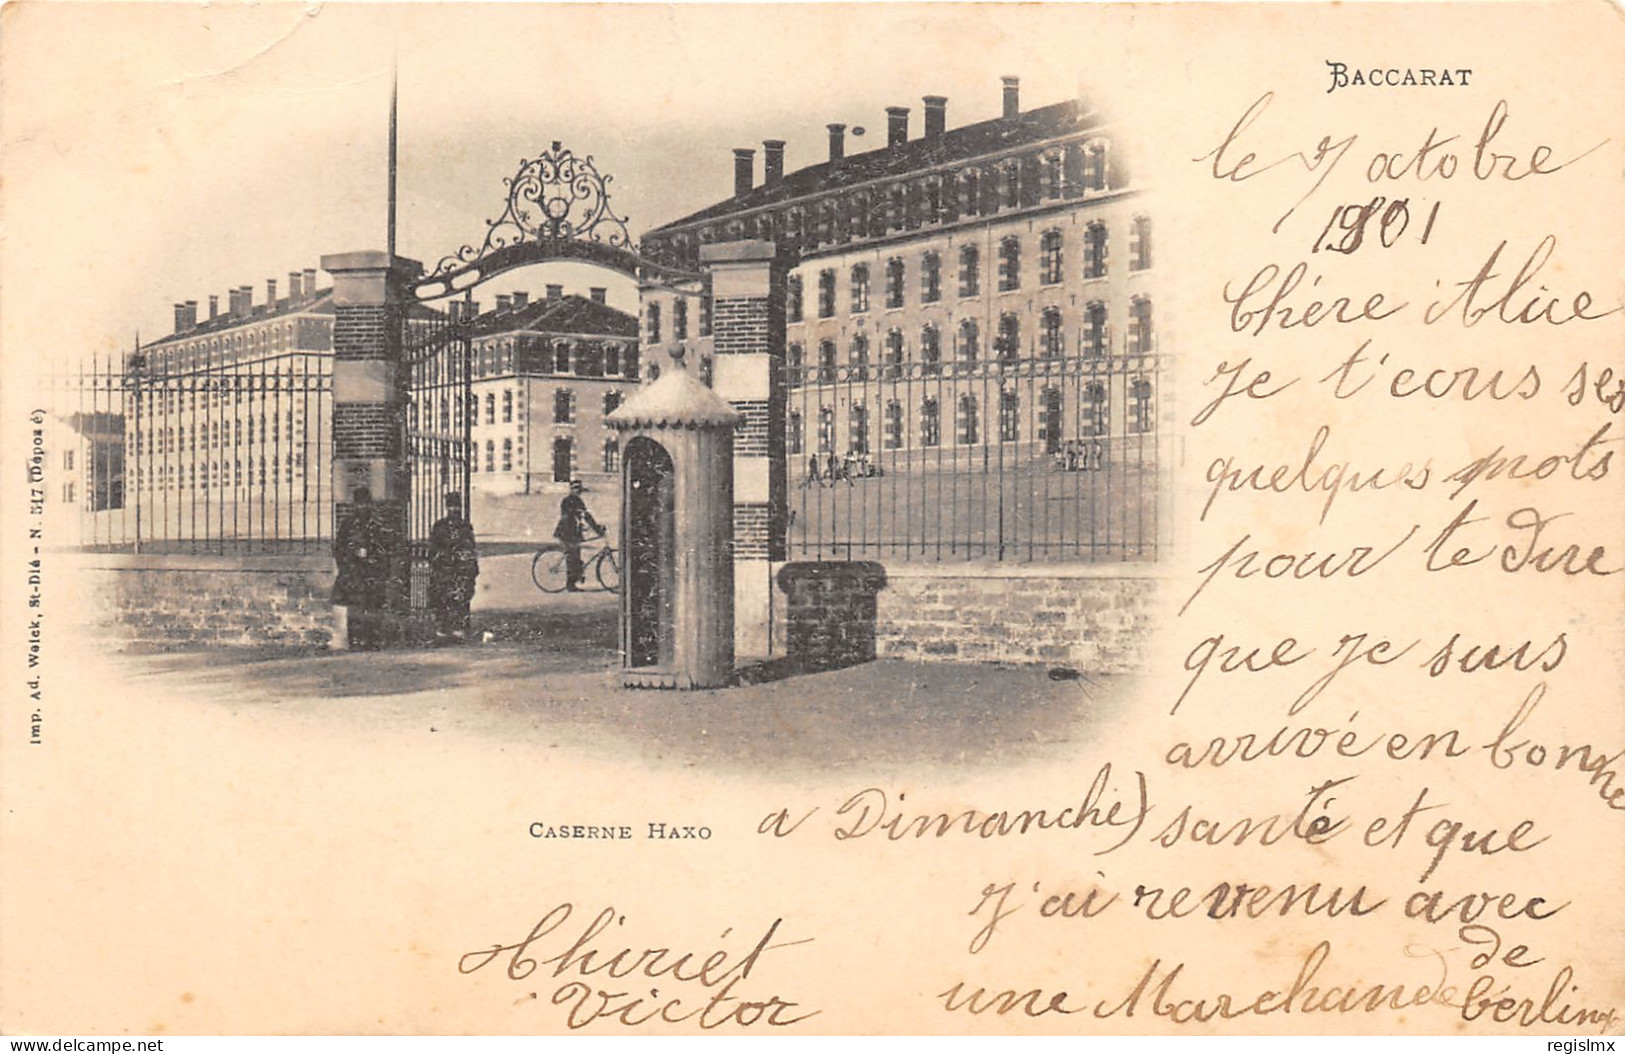 BACCARAT
le 7 octobre
1901
Chére Alice
Je t'ecris ses
quelques mots
pour te dire
que Je suis
arrivé en bonne
santé et que
J'ai revenu avec
une Marchande de
berlin
a Dimanche)
CASERNE HAXO
Thiriét
Victor
Imp. Ad. Weick, St-Dié - N. 517 (Déposé)
delcampe.net
regislmx